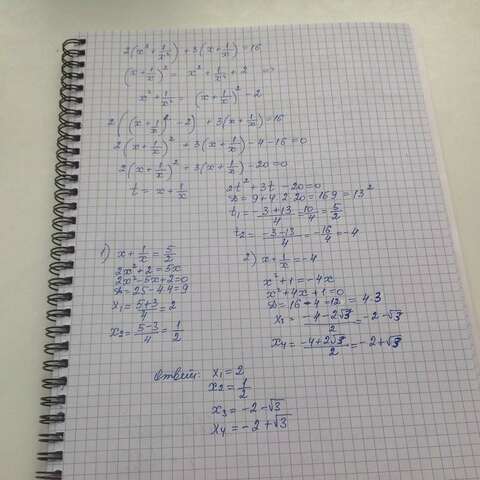 2(x² + 1/x²) + 3(x + 1/x) = 16
(x + 1/x)² = x² + 1/x² + 2 ⇒
x² + 1/x² = (x + 1/x)² − 2
2((x + 1/x)² − 2) + 3(x + 1/x) = 16
2(x + 1/x)² + 3(x + 1/x) − 4 − 16 = 0
2(x + 1/x)² + 3(x + 1/x) − 20 = 0
t = x + 1/x
2t² + 3t − 20 = 0
D = 9 + 4·2·20 = 169 = 13²
t₁ = (−3+13)/4 = 10/4 = 5/2
t₂ = (−3−13)/4 = −16/4 = −4
1) x + 1/x = 5/2
2x² + 2 = 5x
2x² − 5x + 2 = 0
D = 25 − 4·4 = 9
x₁ = (5+3)/4 = 2
x₂ = (5−3)/4 = 1/2
2) x + 1/x = −4
x² + 1 = −4x
x² + 4x + 1 = 0
D = 16 − 4 = 12 = 4·3
x₃ = (−4−2√3)/2 = −2−√3
x₄ = (−4+2√3)/2 = −2+√3
Ответ: x₁ = 2
x₂ = 1/2
x₃ = −2−√3
x₄ = −2+√3